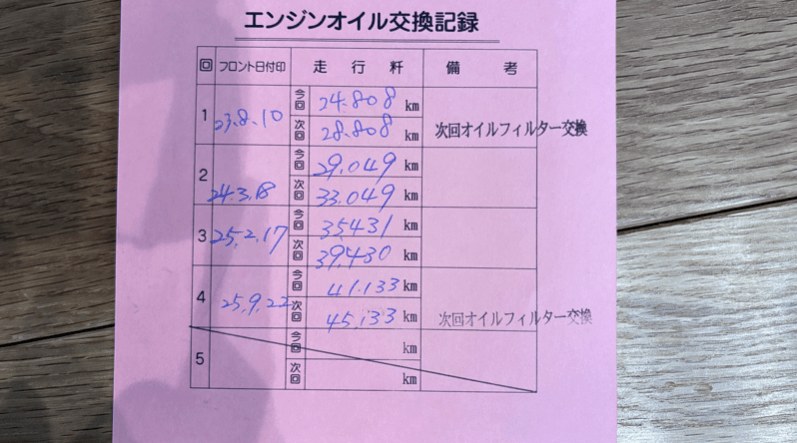 エンジンオイル交換記録
回 フロント日付印 走行粁 備考
1 23.8.10 今回 24.808 km
次回 28.808 km 次回オイルフィルター交換
2 24.3.18 今回 29.049 km
次回 33.049 km
3 25.2.17 今回 35431 km
次回 39,430 km
4 25.9.22 今回 41.133 km
次回 45.133 km 次回オイルフィルター交換
5 今回 km
次回 km